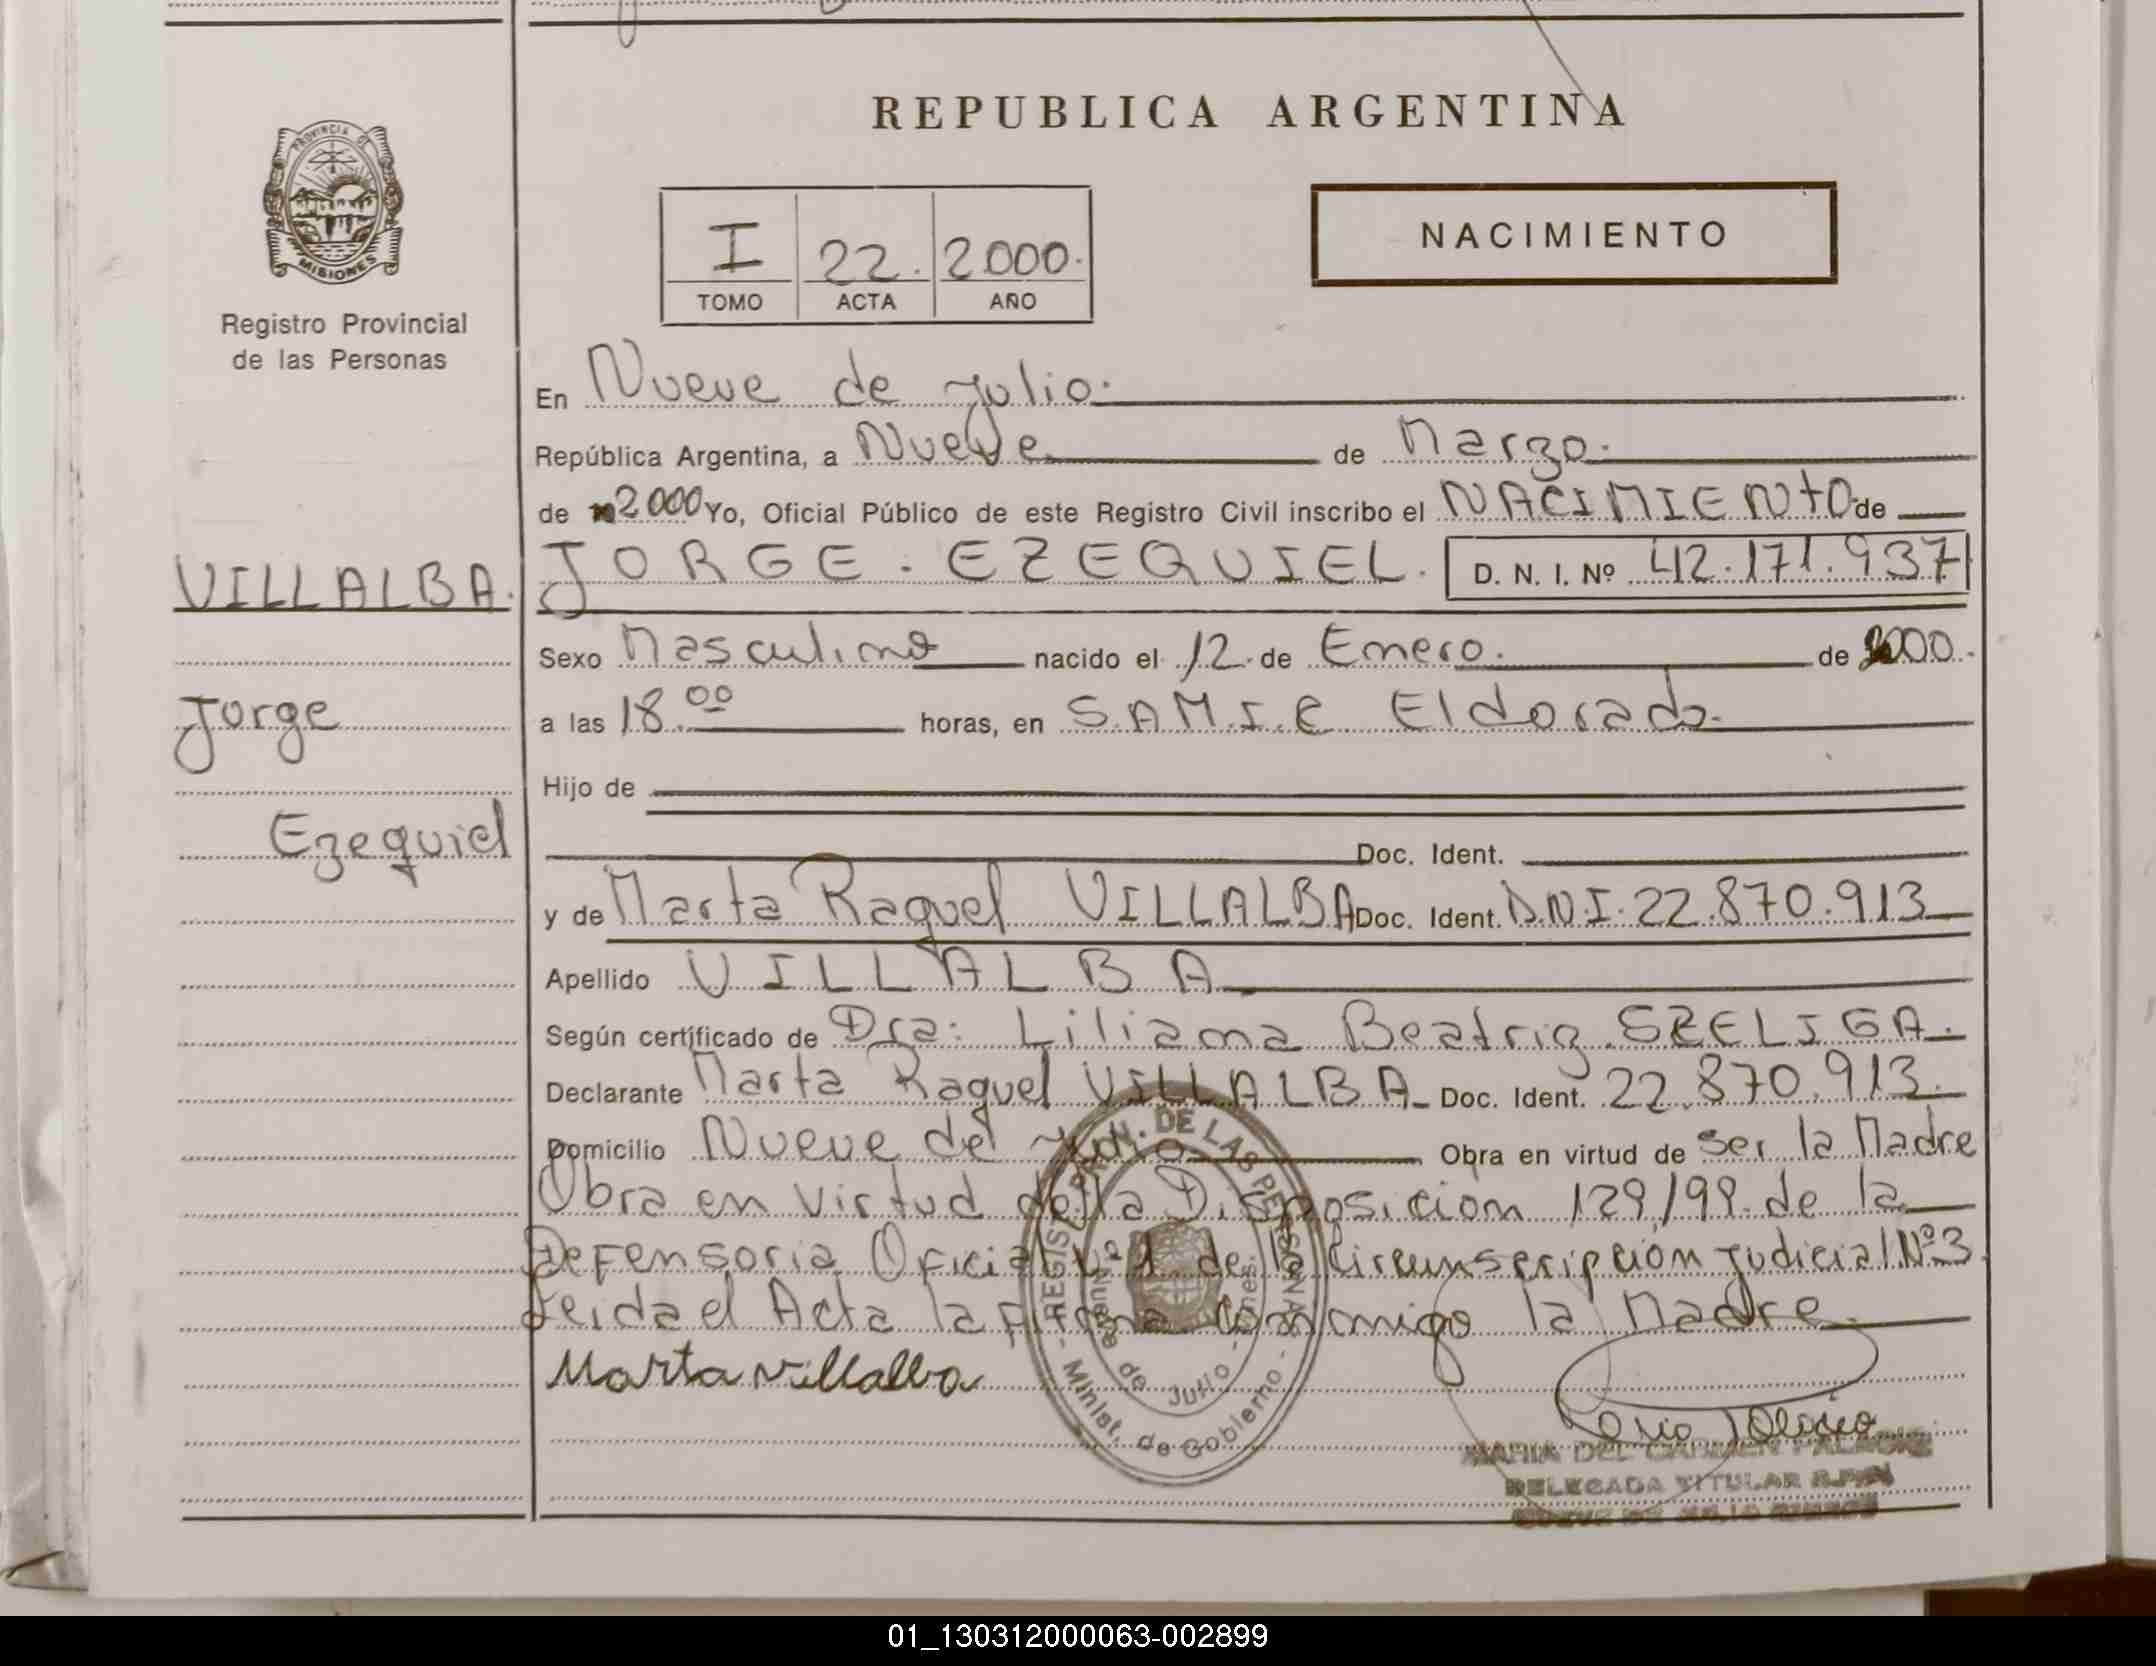 REPUBLICA ARGENTINA
PROVINCIA DE
MISIONES
Registro Provincial
de las Personas
I 22. 2000.
TOMO ACTA AÑO
NACIMIENTO
En Nueve de Julio.
República Argentina, a Nueve de Marzo.
de 2000 Yo, Oficial Público de este Registro Civil inscribo el NACIMIENTO de
VILLALBA. JORGE. EZEQUIEL. D. N. I. Nº 42.171.937
Sexo Masculino nacido el 12 de Enero. de 2000.
Jorge a las 18.00 horas, en S.A.M.I.C Eldorado.
Hijo de
Ezequiel Doc. Ident.
y de Marta Raquel VILLALBA Doc. Ident. D.N.I. 22.870.913
Apellido VILLALBA
Según certificado de Dra: Liliana Beatriz SZELIGA.
Declarante Marta Raquel VILLALBA Doc. Ident. 22.870.913.
Domicilio Nueve de Julio Obra en virtud de ser la Madre
Obra en virtud de la Disposicion 129/99 de la
Defensoria Oficial Nº 1 de la Circunscripción Judicial Nº 3
Leida el Acta la firma conmigo la Madre.
Marta Villalba
REGIST. PROV. DE LAS PERSONAS
Nueve de Julio - Mnes.
- Minist. de Gobierno -
MARIA DEL CARMEN
DELEGADA TITULAR
NUEVE DE JULIO
01_130312000063-002899